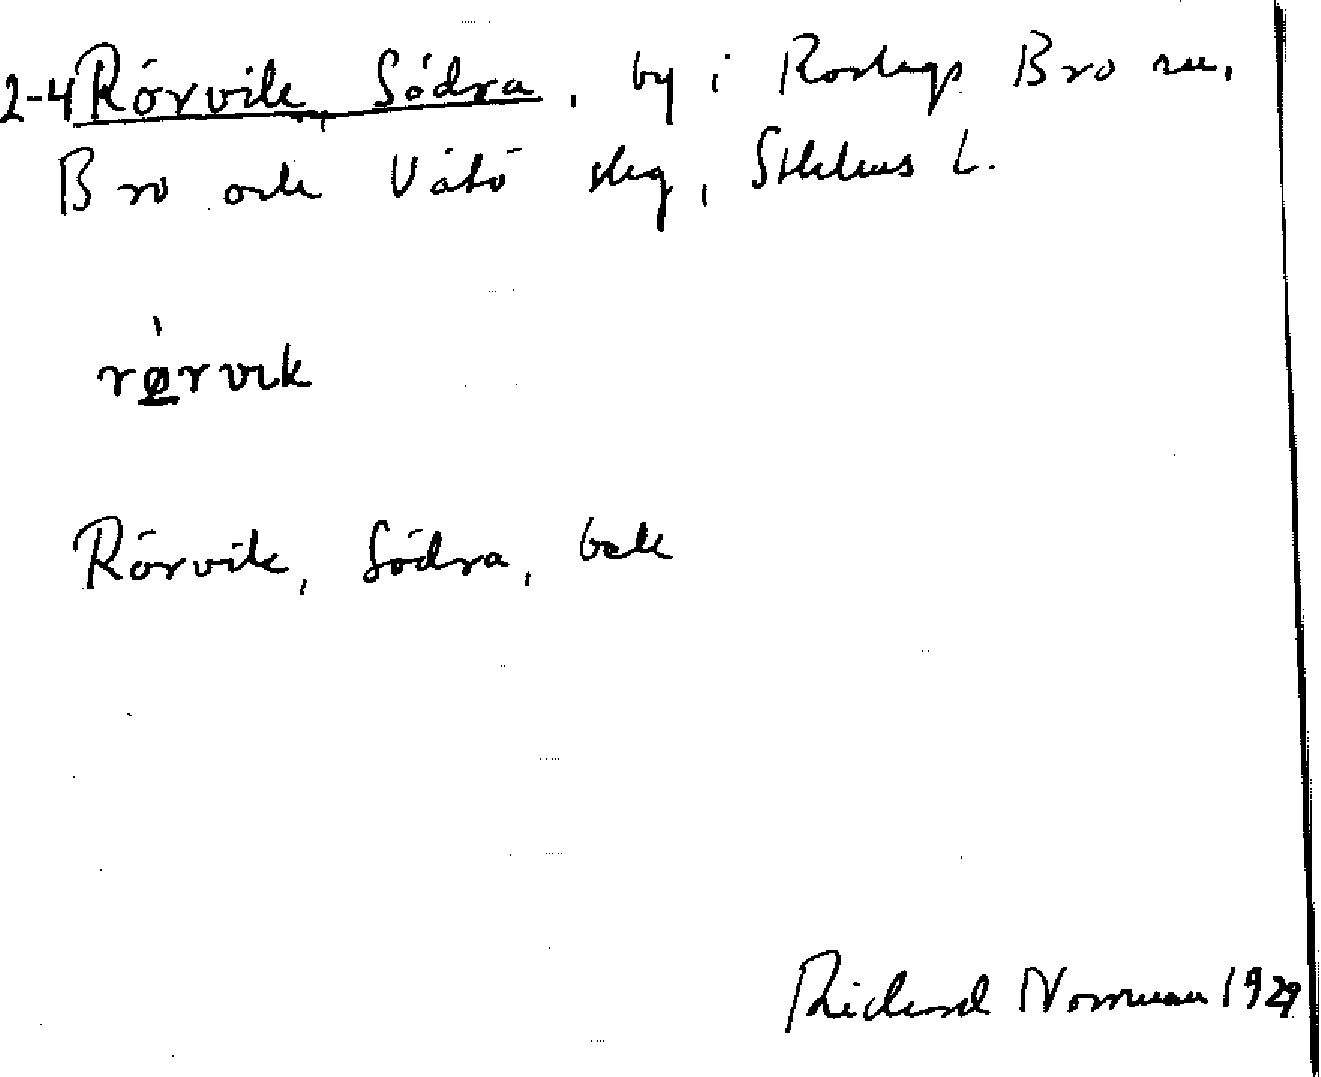 2-4 Rörvik, Södra, by i Roslags Bro sn,
Bro och Vätö skg, Sthlms L.
rørvik
Rörvik, Södra, bak
Richard Norrman 1929